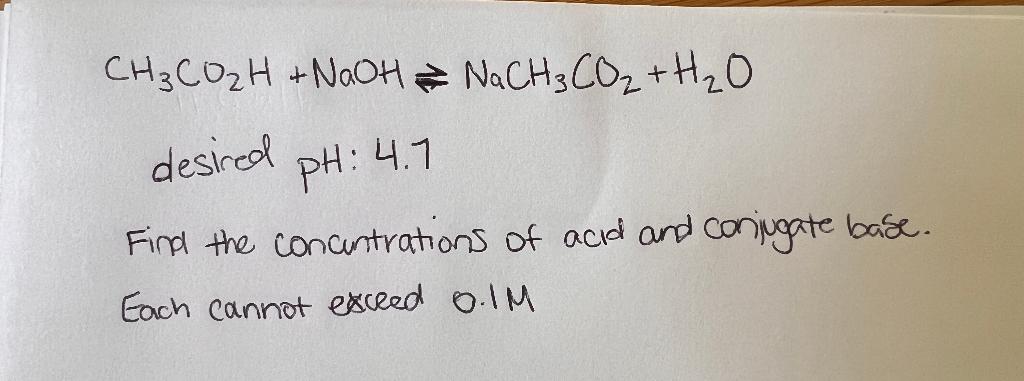 CH₃CO₂H + NaOH ⇌ NaCH₃CO₂ + H₂O
desired pH: 4.7
Find the concentrations of acid and conjugate base.
Each cannot exceed 0.1M